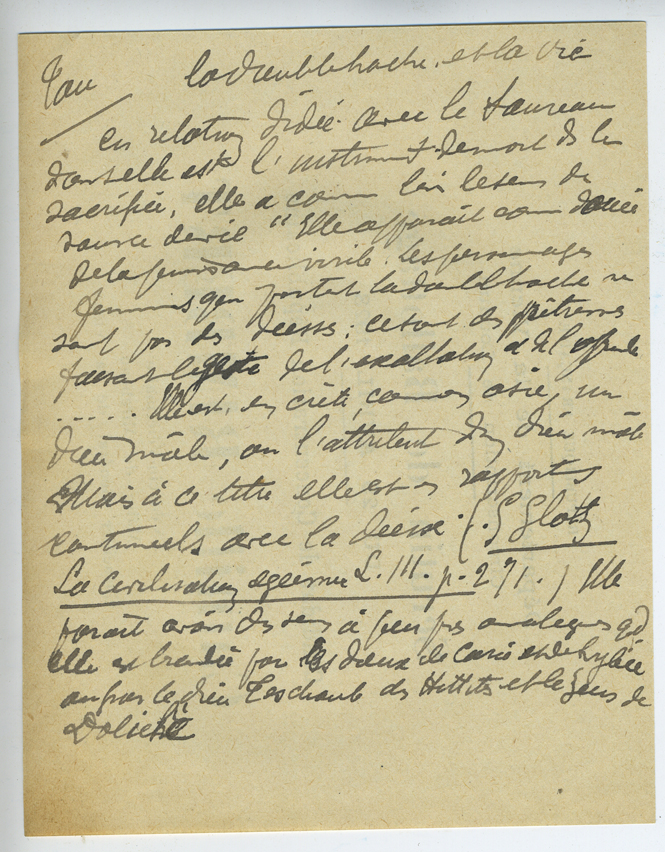 Tau la double hache. et la vie
en relation d'idée avec le taureau
dont elle est l'instrument de mort de la
sacrifié, elle a comme lui le sens de
source de vie " Elle apparait comme douée
de la puissance virile. Les personnages
féminins qui portent la double hache ne
sont pas des déesses; ce sont des prêtresses
faisant le geste de l'exaltation et de l'offrande
..... Elle est, en crète, comme en asie, un
dieu mâle, ou l'attribut d'un dieu mâle
Mais à ce titre elle est en rapports
continuels avec la déesse". (G Glotz
La civilisation egéenne L. III. p. 271.) Elle
parait avoir des sens à peu près analogues qd
elle est brandie par les dieux de Carie et de Lydie
ou par le dieu Teschoub des Hittites et le Zeus de
Doliché